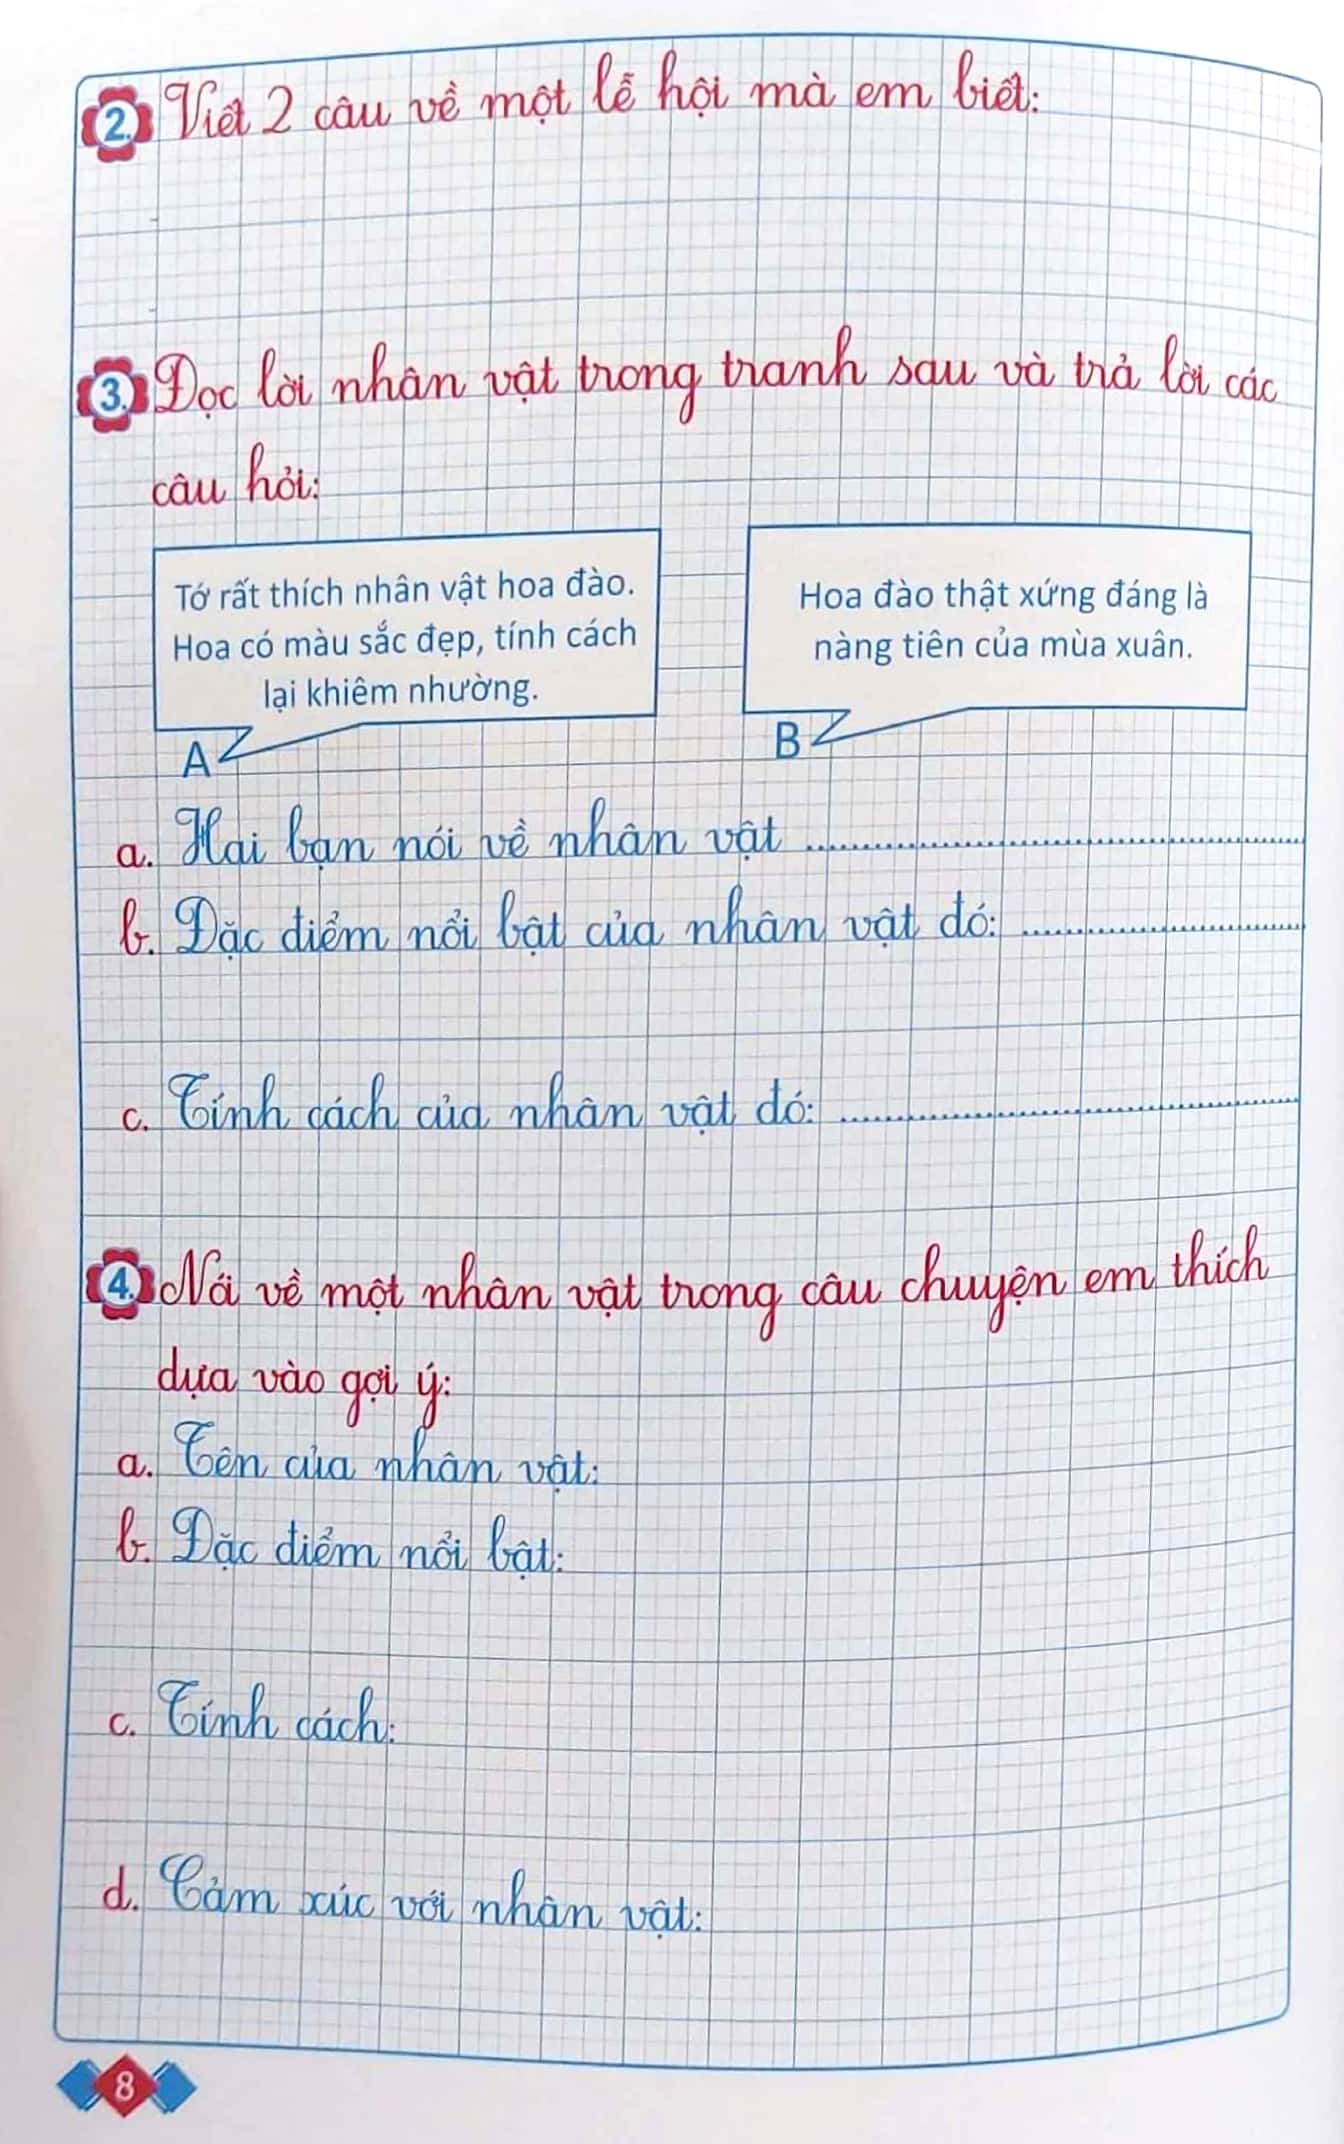 2. Viết 2 câu về một lễ hội mà em biết:
3. Đọc lời nhân vật trong tranh sau và trả lời các
câu hỏi:
Tớ rất thích nhân vật hoa đào.
Hoa có màu sắc đẹp, tính cách
lại khiêm nhường.
A
Hoa đào thật xứng đáng là
nàng tiên của mùa xuân.
B
a. Hai bạn nói về nhân vật ..............................
b. Đặc điểm nổi bật của nhân vật đó: ..............................
c. Tính cách của nhân vật đó: ..............................
4. Nói về một nhân vật trong câu chuyện em thích
dựa vào gợi ý:
a. Tên của nhân vật:
b. Đặc điểm nổi bật:
c. Tính cách:
d. Cảm xúc với nhân vật:
8